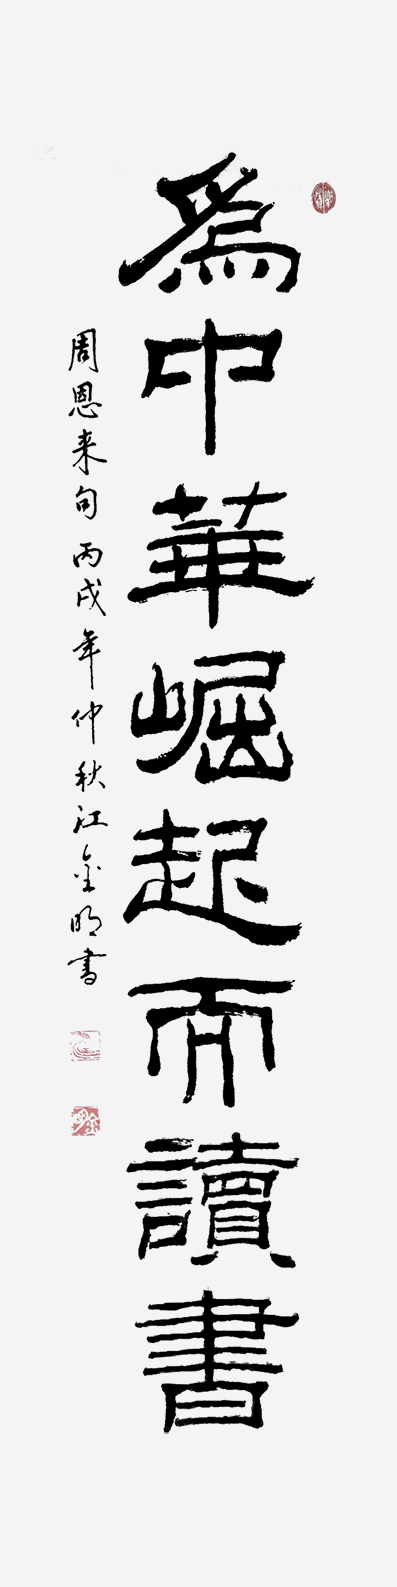 為中華崛起而讀書
周恩来句丙戌年仲秋江金明書